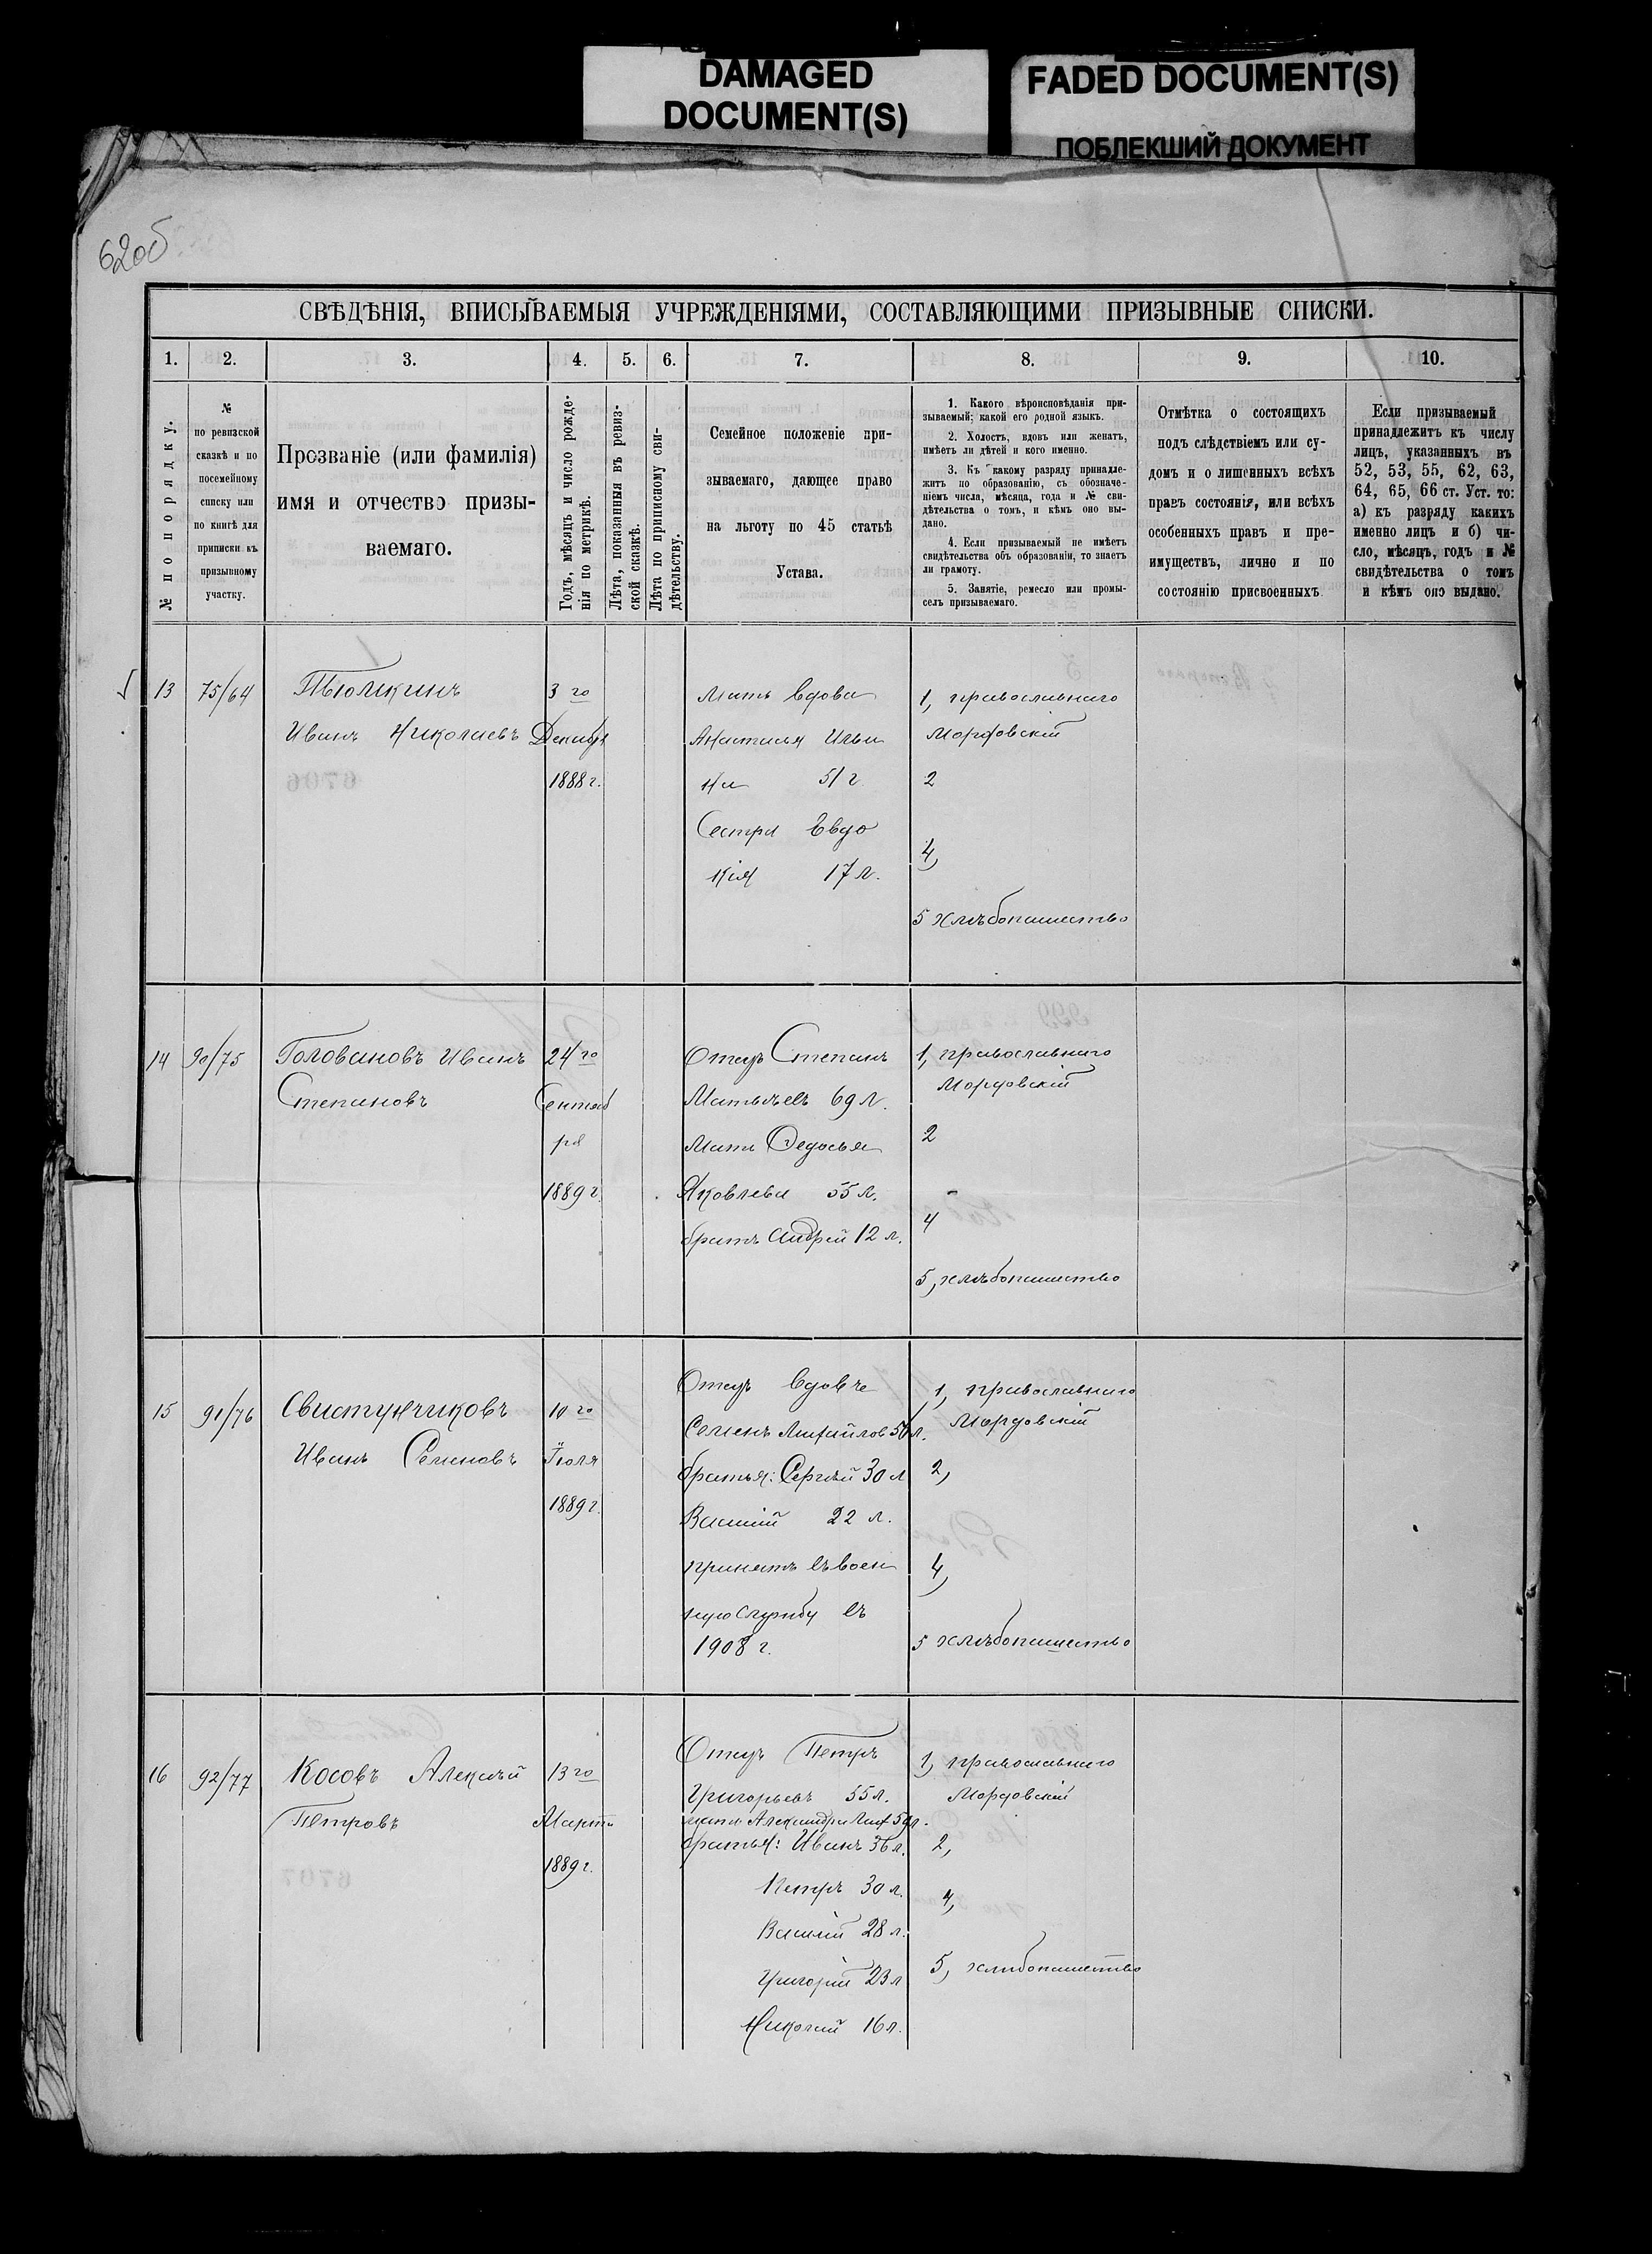 DAMAGED
DOCUMENT(S)
FADED DOCUMENT(S)
ПОБЛЕКШИЙ ДОКУМЕНТ
62об
СВѢДѢНІЯ, ВПИСЫВАЕМЫЯ УЧРЕЖДЕНІЯМИ, СОСТАВЛЯЮЩИМИ ПРИЗЫВНЫЕ СПИСКИ.
1. 2. 3. 4. 5. 6. 7. 8. 9. 10.
№ по порядку.
№
по ревизской
сказкѣ и по
посемейному
списку или
по книгѣ для
приписки къ
призывному
участку.
Прозваніе (или фамилія)
имя и отчество призы-
ваемаго.
Годъ, мѣсяцъ и число рожде-
нія по метрикѣ.
Лѣта, показанныя въ ревиз-
ской сказкѣ.
Лѣта по приписному сви-
дѣтельству.
Семейное положеніе при-
зываемаго, дающее право
на льготу по 45 статьѣ
Устава.
1. Какого вѣроисповѣданія при-
зываемый; какой его родной языкъ.
2. Холостъ, вдовъ или женатъ,
имѣетъ ли дѣтей и кого именно.
3. Къ какому разряду принадле-
житъ по образованію, съ обозначе-
ніемъ числа, мѣсяца, года и № сви-
дѣтельства о томъ, и кѣмъ оно вы-
дано.
4. Если призываемый не имѣетъ
свидѣтельства объ образованіи, то знаетъ
ли грамоту.
5. Занятіе, ремесло или промы-
селъ призываемаго.
Отмѣтка о состоящихъ
подъ слѣдствіемъ или су-
домъ и о лишенныхъ всѣхъ
правъ состоянія, или всѣхъ
особенныхъ правъ и пре-
имуществъ, лично и по
состоянію присвоенныхъ
Если призываемый
принадлежитъ къ числу
лицъ, указанныхъ въ
52, 53, 55, 62, 63,
64, 65, 66 ст. Уст. то:
а) къ разряду какихъ
именно лицъ и б) чи-
сло, мѣсяцъ, годъ и №
свидѣтельства о томъ
и кѣмъ оно выдано.
13 75/64
Тюлькинъ
Иванъ Николаевъ
3 го
Декабря
1888 г.
Мать вдова
Анастасья Ильи
на 51 г
Сестра Евдо
кія 17 л.
1, православнаго
Мордовскій
2
4,
5 хлѣбопашество
14 90/75
Головановъ Иванъ
Степановъ
24 го
Сентяб
ря
1889 г.
Отецъ Степанъ
Матвѣевъ 69 л.
Мать Федосья
Яковлева 55 л.
братъ Андрей 12 л.
1, православнаго
Мордовскій
2
4
5, хлѣбопашество
15 91/76
Свистунчиковъ
Иванъ Семеновъ
10 го
Іюля
1889 г.
Отецъ вдовче
Семенъ Михайлов 56 л.
братья: Сергѣй 30 л
Василій 22 л.
принятъ въ воен
ную службу въ
1908 г.
1, православнаго
Мордовскій
2,
4,
5 хлѣбопашество
16 92/77
Косовъ Алексѣй
Петровъ
13 го
Марта
1889 г.
Отецъ Петръ
Григорьевъ 55 л.
мать Александра Мих
братья: Иванъ 36 л.
Петръ 30 л.
Василій 28 л.
Григорій 23 л
Николай 16 л.
1, православнаго
Мордовскій
2,
4,
5, хлѣбопашество